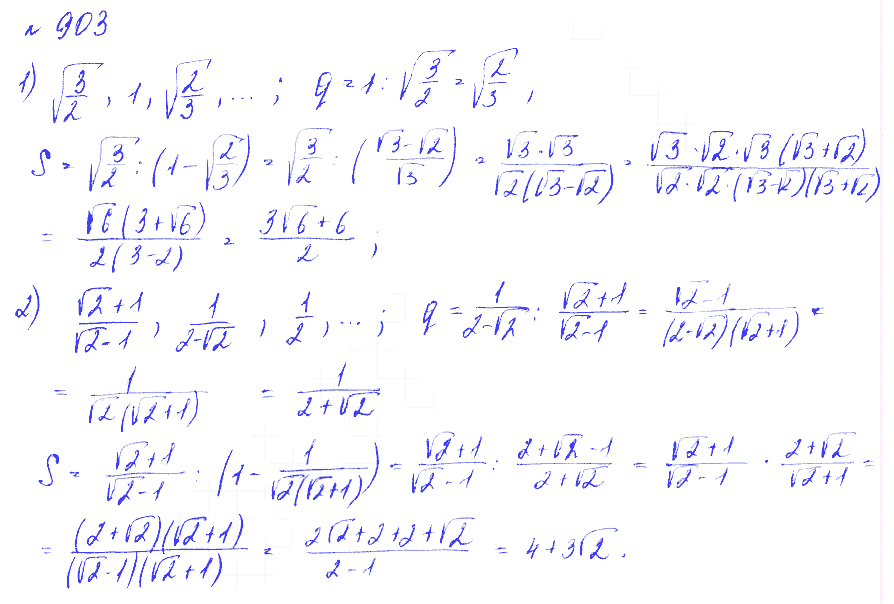 № 903
1) √(3/2), 1, √(2/3), ...; q = 1 : √(3/2) = √(2/3),
S = √(3/2) : (1 - √(2/3)) = √(3/2) : ((√3 - √2)/√3) = (√3 · √3)/(√2(√3 - √2)) = (√3 · √2 · √3(√3 + √2))/(√2 · √2 · (√3 - √2)(√3 + √2))
= (√6(3 + √6))/(2(3 - 2)) = (3√6 + 6)/2;
2) (√2 + 1)/(√2 - 1), 1/(2 - √2), 1/2, ...; q = 1/(2 - √2) : (√2 + 1)/(√2 - 1) = (√2 - 1)/((2 - √2)(√2 + 1)) =
= 1/(√2(√2 + 1)) = 1/(2 + √2)
S = (√2 + 1)/(√2 - 1) : (1 - 1/(√2(√2 + 1))) = (√2 + 1)/(√2 - 1) : (2 + √2 - 1)/(2 + √2) = (√2 + 1)/(√2 - 1) · (2 + √2)/(√2 + 1) =
= ((2 + √2)(√2 + 1))/((√2 - 1)(√2 + 1)) = (2√2 + 2 + 2 + √2)/(2 - 1) = 4 + 3√2.